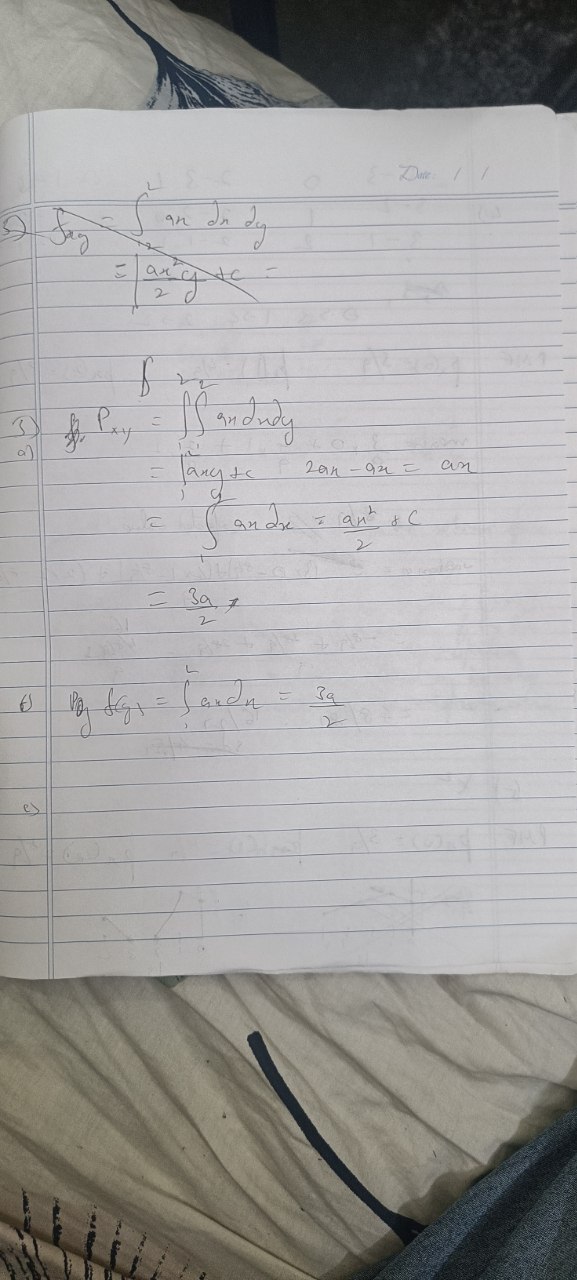 Date: / /
= ∫ ax dx dy
= ax²y/2 + c =
3)
a) P_xy = ∫₁²∫₁² ax dx dy
= |axy + c 2ax - ax = ax
= ∫₁ ax dx = ax²/2 + c
= 3a/2
f(y) = ∫₁² ax dx = 3a/2
c)